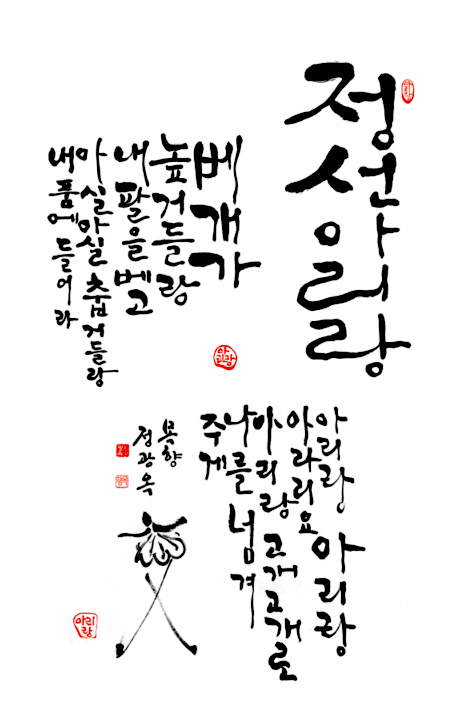 정선아리랑
베개가
높거들랑
내 팔을 베고
아실아실 춥거들랑
내 품에 들어라
아리랑
아리랑 아리랑
아라리요
아리랑 고개고개로
나를 넘겨
주게
목향
정광옥
아리랑